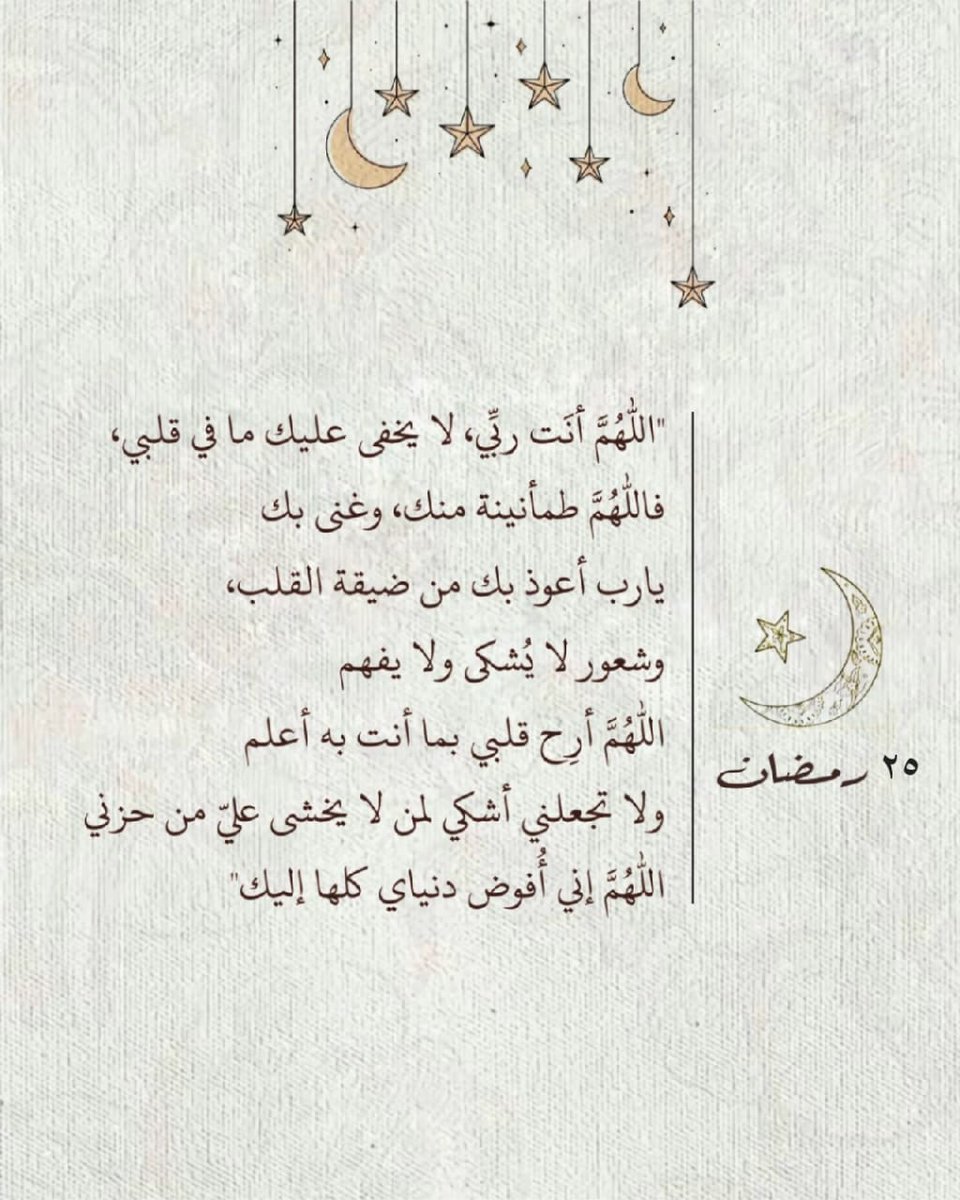 "اللّٰهُمَّ أنَت ربِّي، لا يخفى عليك ما في قلبي،
فاللّٰهُمَّ طمأنينة منك، وغنى بك
يارب أعوذ بك من ضيقة القلب،
وشعور لا يُشكى ولا يفهم
اللّٰهُمَّ أرِح قلبي بما أنت به أعلم
ولا تجعلني أشكي لمن لا يخشى عليّ من حزني
اللّٰهُمَّ إني أُفوض دنياي كلها إليك"
٢٥ رمضان